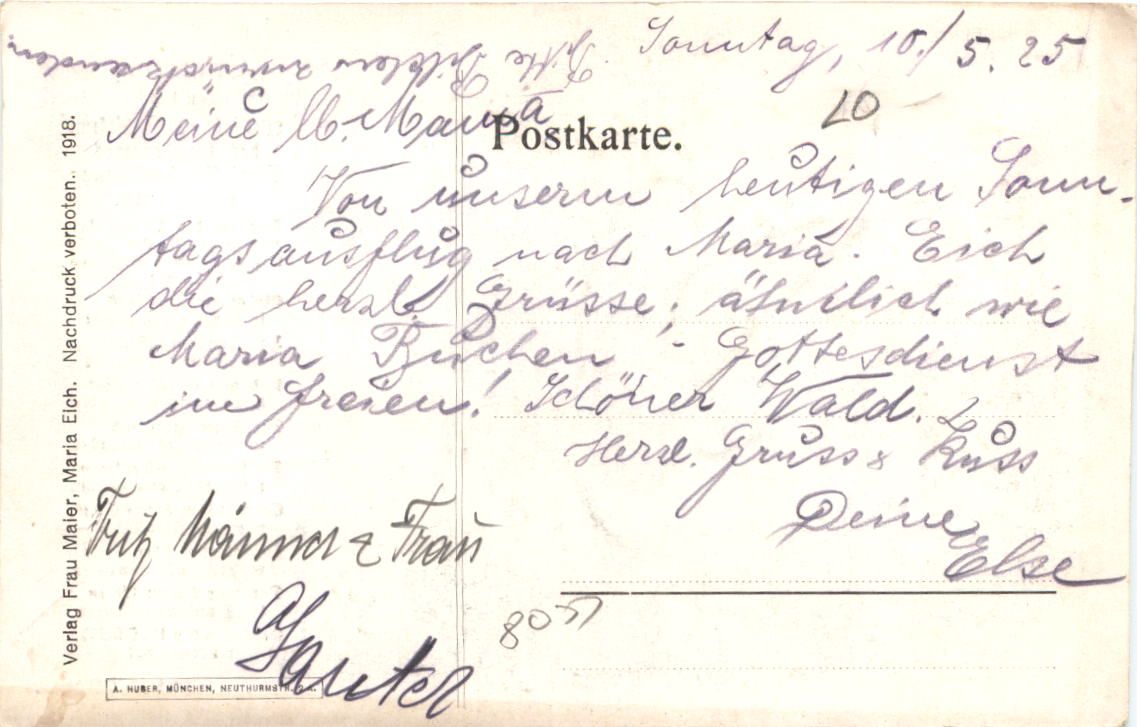 Sonntag, 10./5.25
Bitte Bilder zurücksenden.
Meine lb. Mama
Postkarte.
LO
Von unserm heutigen Sonn-
tagsausflug nach Maria-Eich
die herzl. Grüsse; ähnlich wie
Maria Buchen! - Gottesdienst
im freien! Schöner Wald.
Herzl. Gruss & Kuss
Deine
Else
Fritz & Frau
A. HUBER, MÜNCHEN, NEUTHURMSTR.
Verlag Frau Maier, Maria Eich. Nachdruck verboten. 1918.